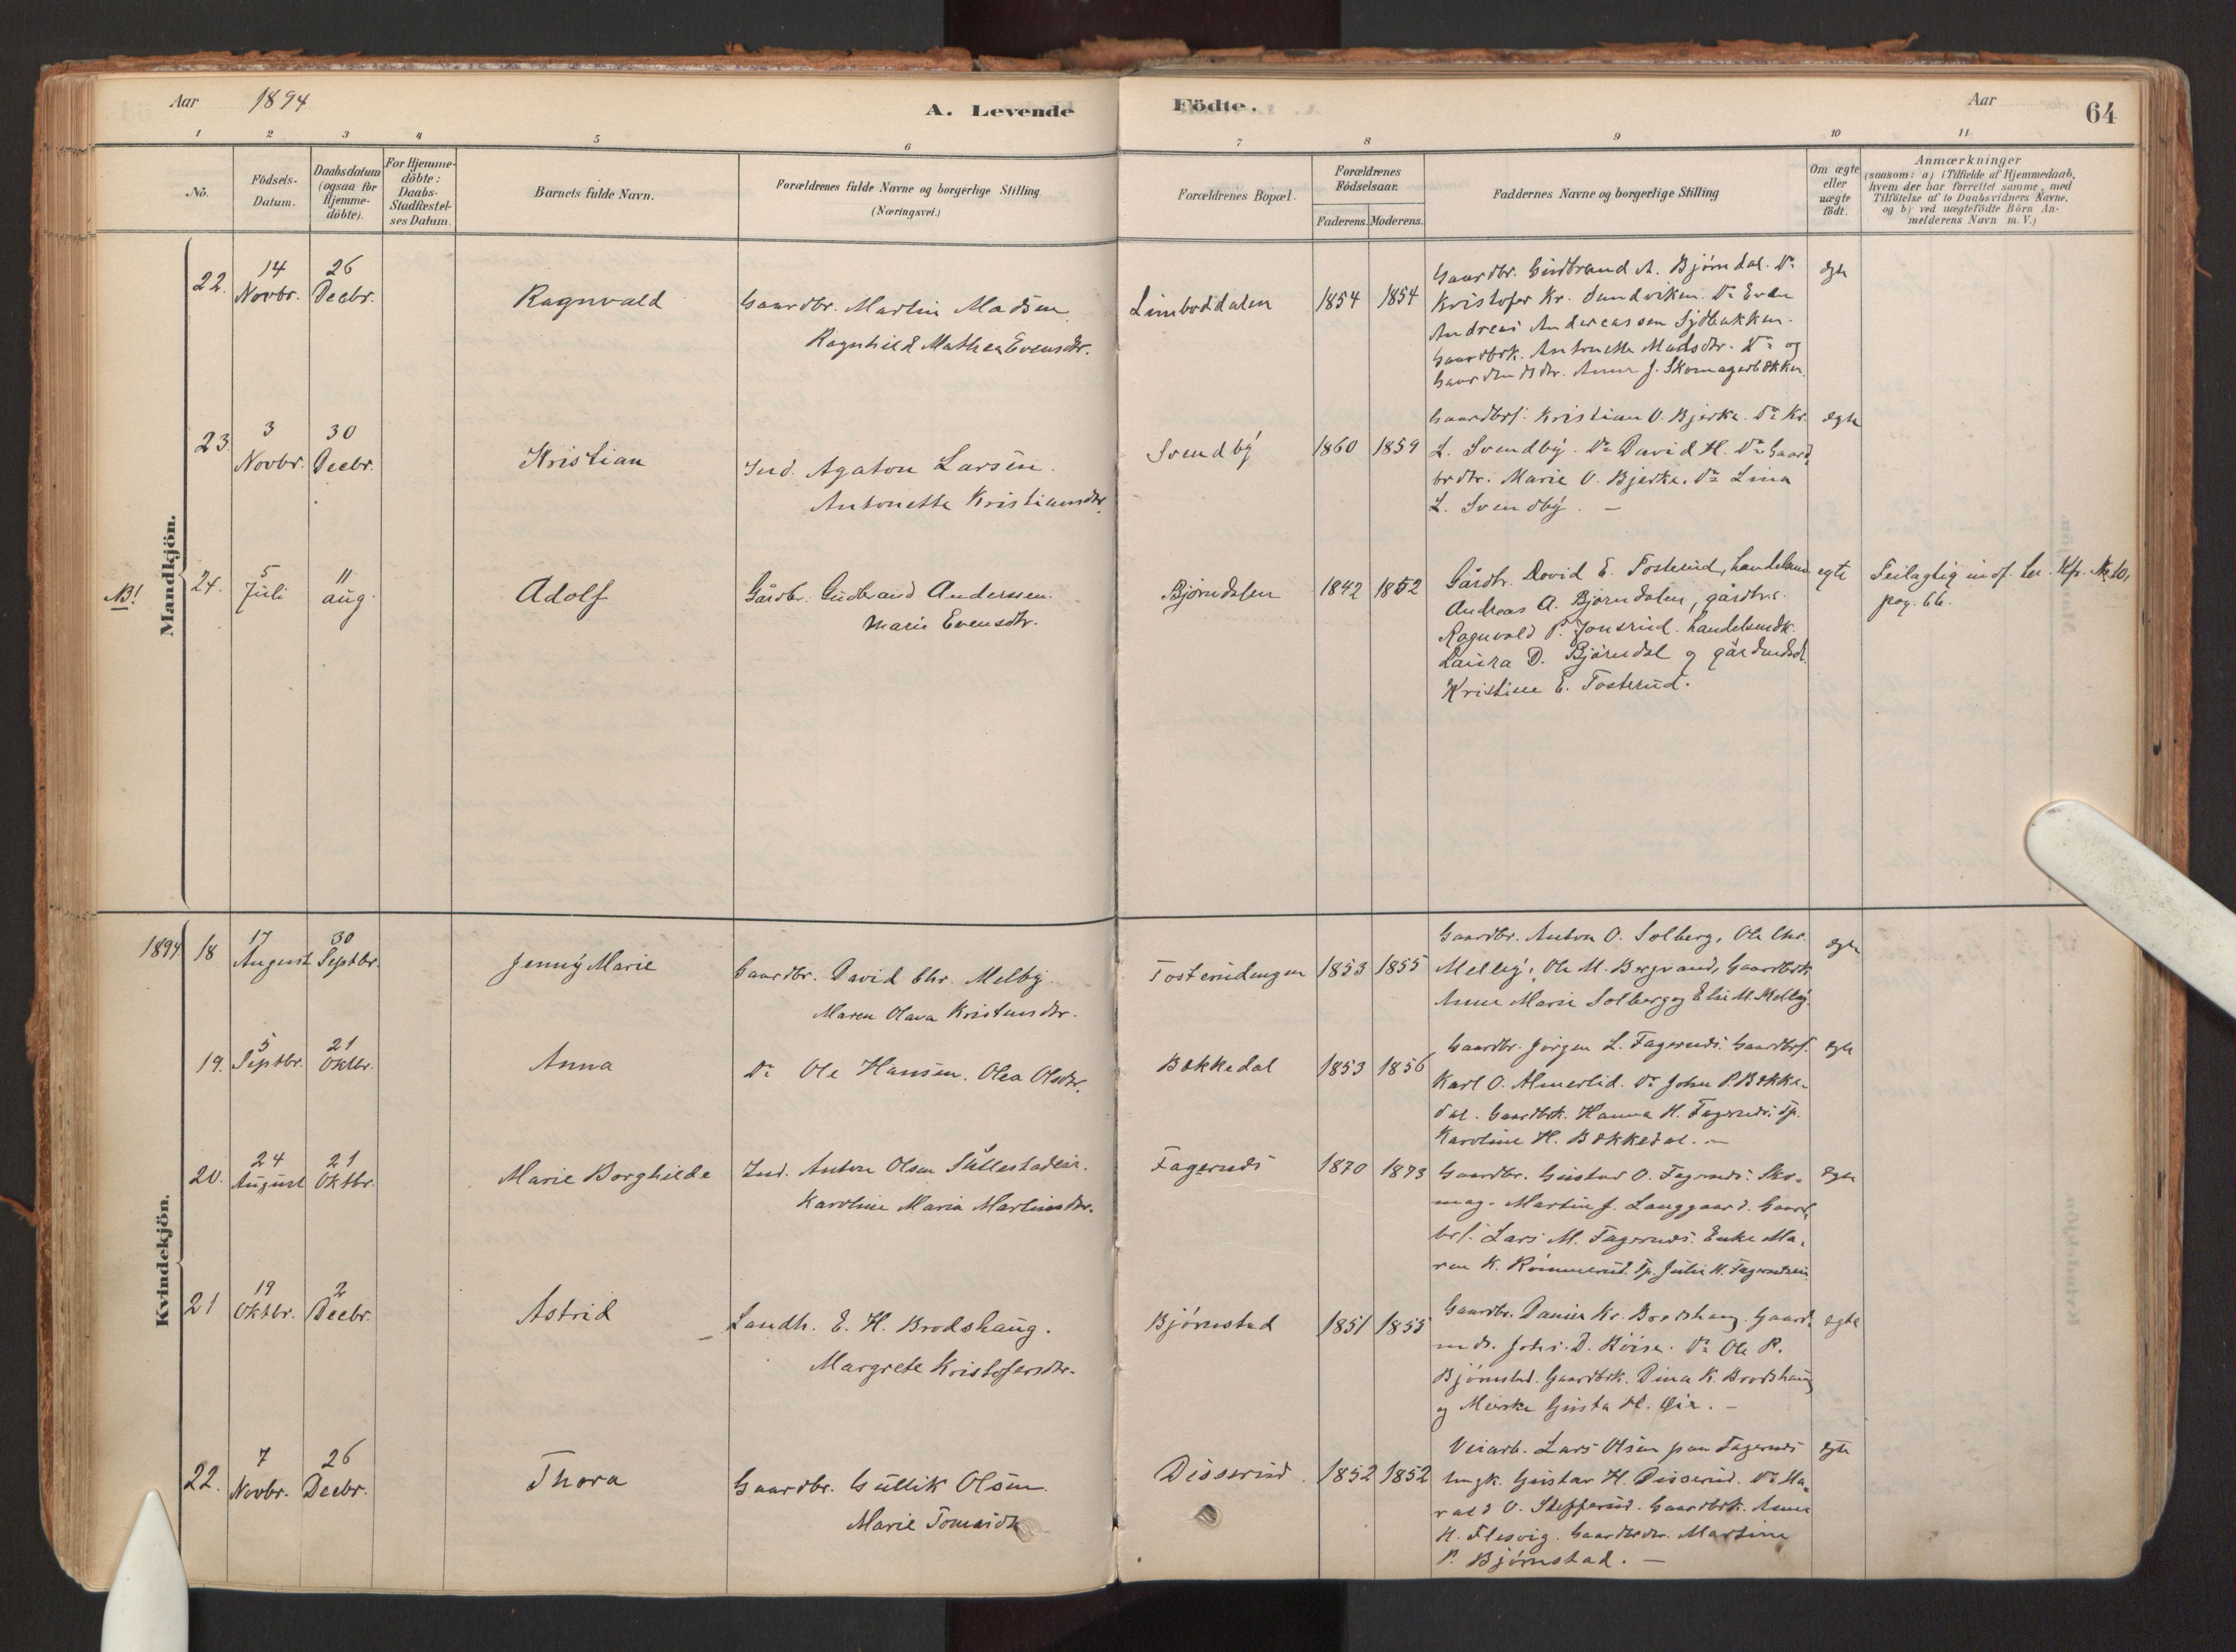 Aar 1894
A. Levende Födte.
Aar
64
1 2 3 4 5 6 7 8 9 10 11
No.
Födsels-
Datum.
Daabsdatum
(ogsaa for
Hjemme-
döbte).
For Hjemme-
döbte:
Daabs-
Stadfæstel-
ses Datum.
Barnets fulde Navn.
Forældrenes fulde Navne og borgerlige Stilling.
(Næringsvei.)
Forældrenes Bopæl.
Forældrenes
Födselsaar.
Faderens. Moderens.
Faddernes Navne og borgerlige Stilling
Om ægte
eller
uægte
födt.
Anmærkninger
(saasom: a) i Tilfælde af Hjemmedaab,
hvem der har forrettet samme, med
Tilföielse af to Daabsvidners Navne,
og b) ved uægtefödte Börn An-
melderens Navn m. V.)
Mandkjön.
22. 14 Novbr. 26 Decbr.
Ragnvald
Gaardbr. Martin Madsen
Ragnhild Mathea Evensdtr.
1854 1854
Gaardbr. Gudbrand A. Bjørndal. Do
Kristofer Kr. Sundviken. Do Even
Andreas Andreassen
Gaardbrk. Antonette Madsdtr. Do og
Anne J. Skomagerbakken.
Egte
23. 3 Novbr. 30 Decbr.
Kristian
Ind. Agaton Larsen.
Antonette Kristiansdtr.
Svendby
1860 1859
Gaardbrs. Kristian O. Bjerke. Do Kr.
L. Svendby. Do David H. Do Gaard-
brdtr. Marie O. Bjerke. Do Lina
L. Svendby. —
Egte
NB!
24. 5 Juli 11 aug.
Adolf
Gårdbr. Gudbrand Anderssen.
Marie Evensdtr.
Bjørndalen
1842 1852
Gårdbr. David E. Tosterud, handelsm.
Andreas A. Bjørndalen, gårdbrs.
Ragnvald P. Jonsrud. handelsmdk.
Laura D. Bjørndal og
Kristine E. Tosterud.
egte
Feilagtig indf. No 10,
pag. 66.
Kvindekjön.
1894
18 17 August 30 Septbr.
Jenny Marie
Gaardbr. David Chr. Melby.
Maren Olava Kristensdtr.
Tosterudengen
1853 1855
Gaardbr. Anton O. Solberg, Ole Chr.
Melby, Ole M. Bergvand, Gaardbrk.
Anne Marie Solberg og Elie M. Melby.
egte
19. 5 Septbr. 21 Oktbr.
Anna
Do Ole Hansen. Olea Olsdtr.
Bekkedal
1853 1856
Gaardbr. Jørgen L. Fagernæs. Gaardbrs.
Karl O. Almerlid. Do John P. Bekke-
dal. Gaardbrk. Hanna H. Fagernæs. Tp.
Karoline H. Bekkedal. —
Egte
20. 24 August 21 Oktbr.
Marie Borghilde
Ind. Anton Olsen
Karoline Maria Martinsdtr.
Fagernæs
1870 1873
Gaardbr. Gustav O. Fagernæs. Sko-
mag. Martin J. Langgaard. Gaard-
brs. Lars M. Fagernæs. Enke Ma-
ren K. Rømmerud. Tp. Julie H.
Egte
21 19 Oktbr. 2 Decbr.
Astrid
Landh. E. H. Brodshaug.
Margrete Kristofersdtr.
Bjørnstad
1851 1855
Gaardbr. Daniel Kr. Brodshaug. Gaard-
mds. Johs. D. Do Ole P.
Bjørnstad. Gaardbrk. Dina K. Brodshaug
og Meierske Gusta H. Øie. —
egte
22. 7 Novbr. 26 Decbr.
Thora
Gaardbr. Gullik Olsen.
Marie Tomasdtr
Disserud.
1852 1852
Veiarb. Lars Olsen paa Fagernæs
Ungk. Gustav H. Disserud. Do Ha-
rald O. Gaardbrk. Anne
H. Flesvig. Gaardbrdtr. Martine
P. Bjørnstad. —
Egte